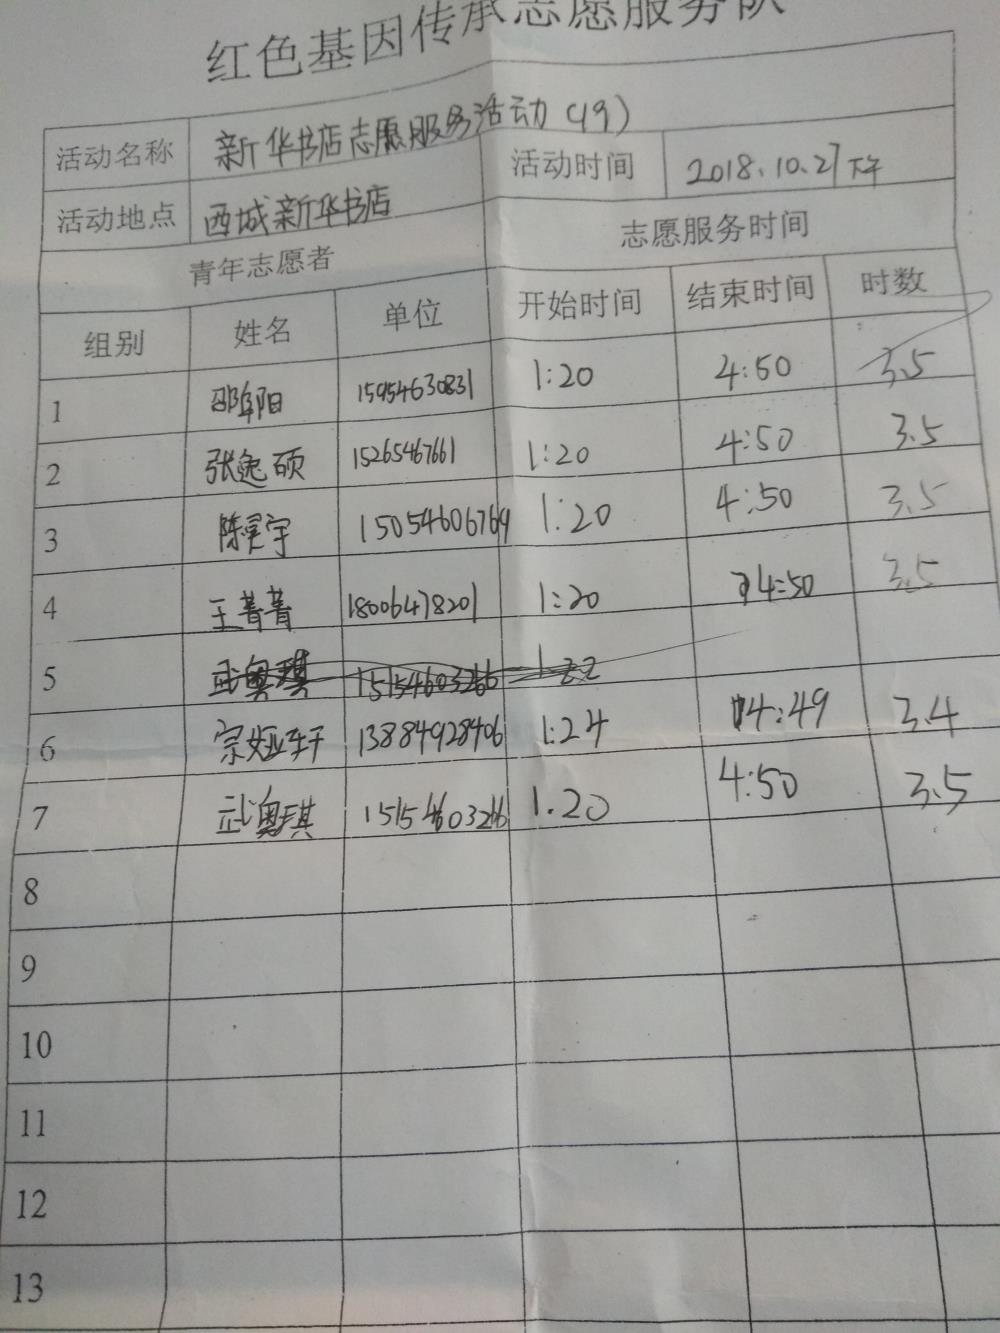 红色基因传承志愿服务队
活动名称 新华书店志愿服务活动（19）
活动地点 西城新华书店 活动时间 2018.10.27下午
青年志愿者 志愿服务时间
组别 姓名 单位 开始时间 结束时间 时数
1 邵阜阳 15954630831 1:20 4:50 3.5
2 张逸硕 15265467661 1:20 4:50 3.5
3 陈昱宇 15054606769 1:20 4:50 3.5
4 王菁菁 18006478201 1:20 4:50 3.5
5 武奥琪 15154603266
6 宗娅轩 13884928406 1:24 4:49 3.4
7 武奥琪 15154603266 1.20 4:50 3.5
8
9
10
11
12
13